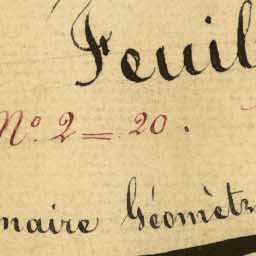 Feuil
No. 2 = 20.
naire Géomètr